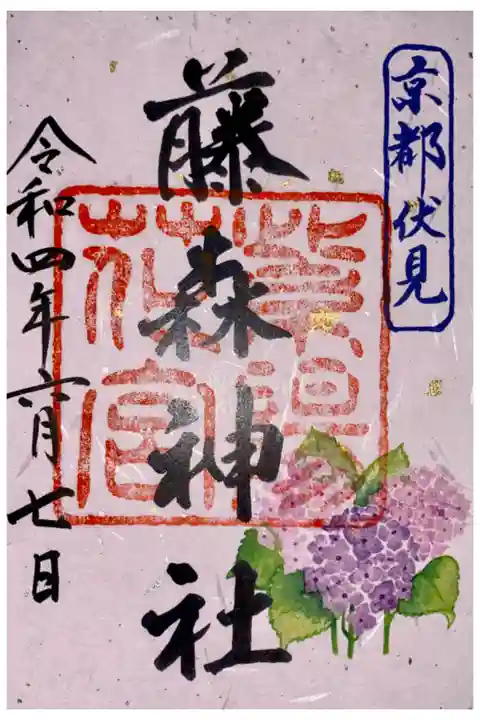 京都伏見
藤森神社
令和四年六月七日